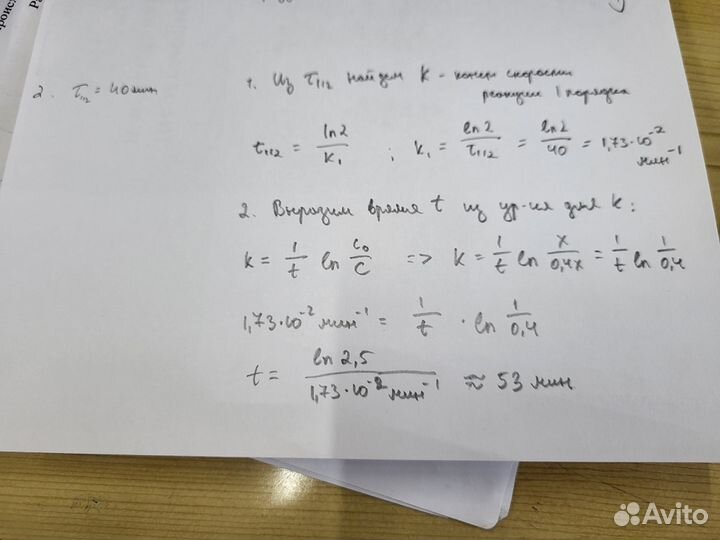 2. τ1/2 = 40 мин
1. Из τ1/2 найдем K - конст скорости
реакции 1 порядка
t1/2 = ln2/K1 ; K1 = ln2/τ1/2 = ln2/40 = 1,73·10^-2 мин^-1
2. Выразим время t из ур-ия для k:
k = 1/t ln C0/C => K = 1/t ln x/0,4x = 1/t ln 1/0,4
1,73·10^-2 мин^-1 = 1/t · ln 1/0,4
t = ln 2,5 / 1,73·10^-2 мин^-1 ≈ 53 мин
Avito